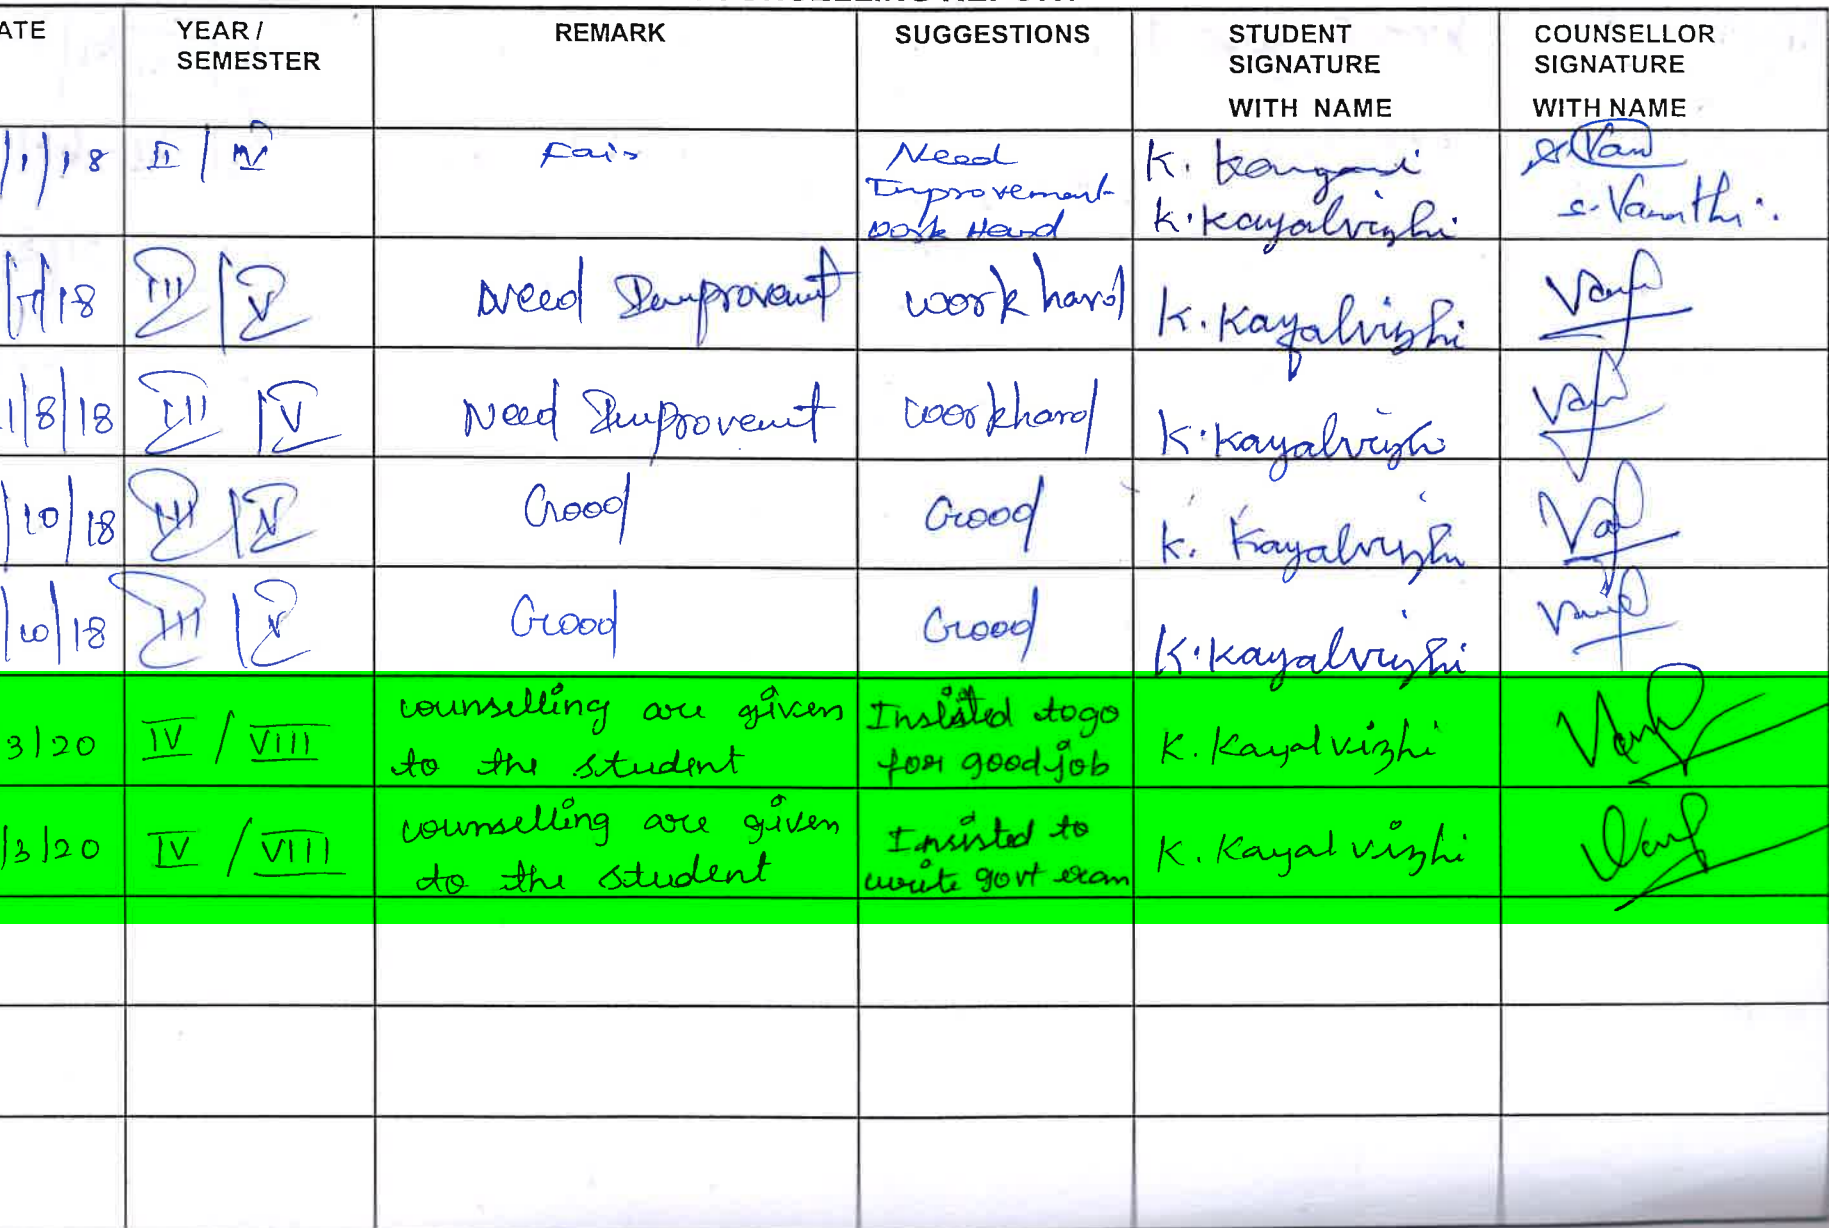 ATE YEAR / SEMESTER REMARK SUGGESTIONS STUDENT SIGNATURE WITH NAME COUNSELLOR SIGNATURE WITH NAME
/1/18 II / IV Fair Need
Improvement
Work Hard K. Kayalvizhi s. Vananthi.
/7/18 III / V Need Improvemt work hard K. Kayalvizhi
1/8/18 III / V Need Improvemt workhard K. Kayalvizhi
/10/18 III / V Good Good K. Kayalvizhi
/10/18 III / V Good Good K. Kayalvizhi
3/20 IV / VIII counselling are given
to the student Insisted to go
for good job K. Kayalvizhi
/3/20 IV / VIII counselling are given
to the student Insisted to
write govt exam K. Kayalvizhi